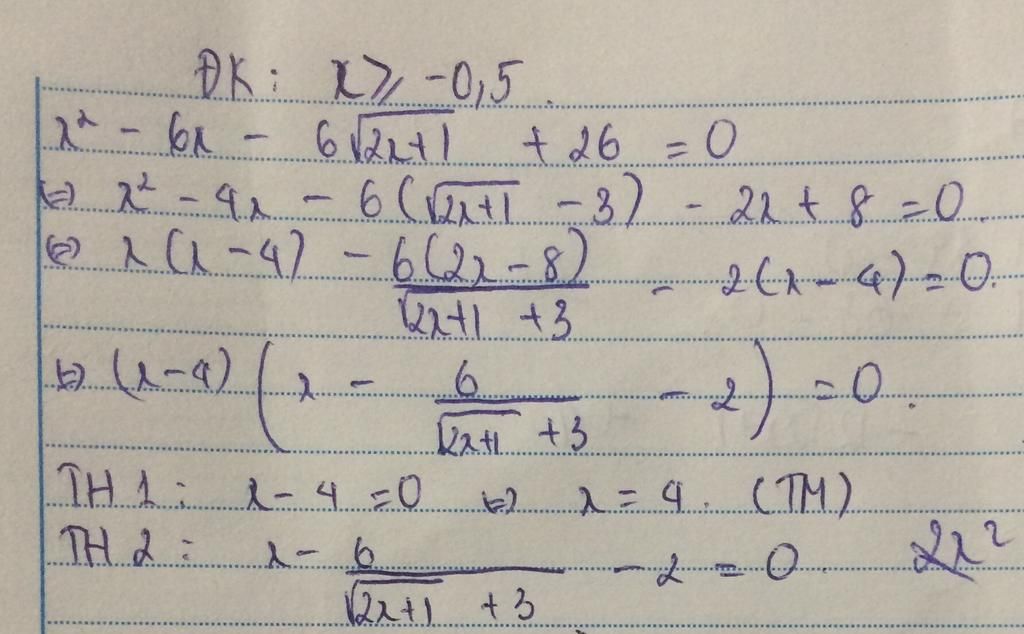 ĐK: x ≥ -0,5.
x² - 6x - 6√(2x+1) + 26 = 0
⇔ x² - 4x - 6(√(2x+1) - 3) - 2x + 8 = 0.
⇔ x(x-4) - 6(2x-8)/(√(2x+1) + 3) - 2(x-4) = 0.
⇔ (x-4)(x - 6/(√(2x+1) + 3) - 2) = 0.
TH1: x-4 = 0 ⇔ x = 4. (TM)
TH2: x - 6/(√(2x+1) + 3) - 2 = 0. 2x²